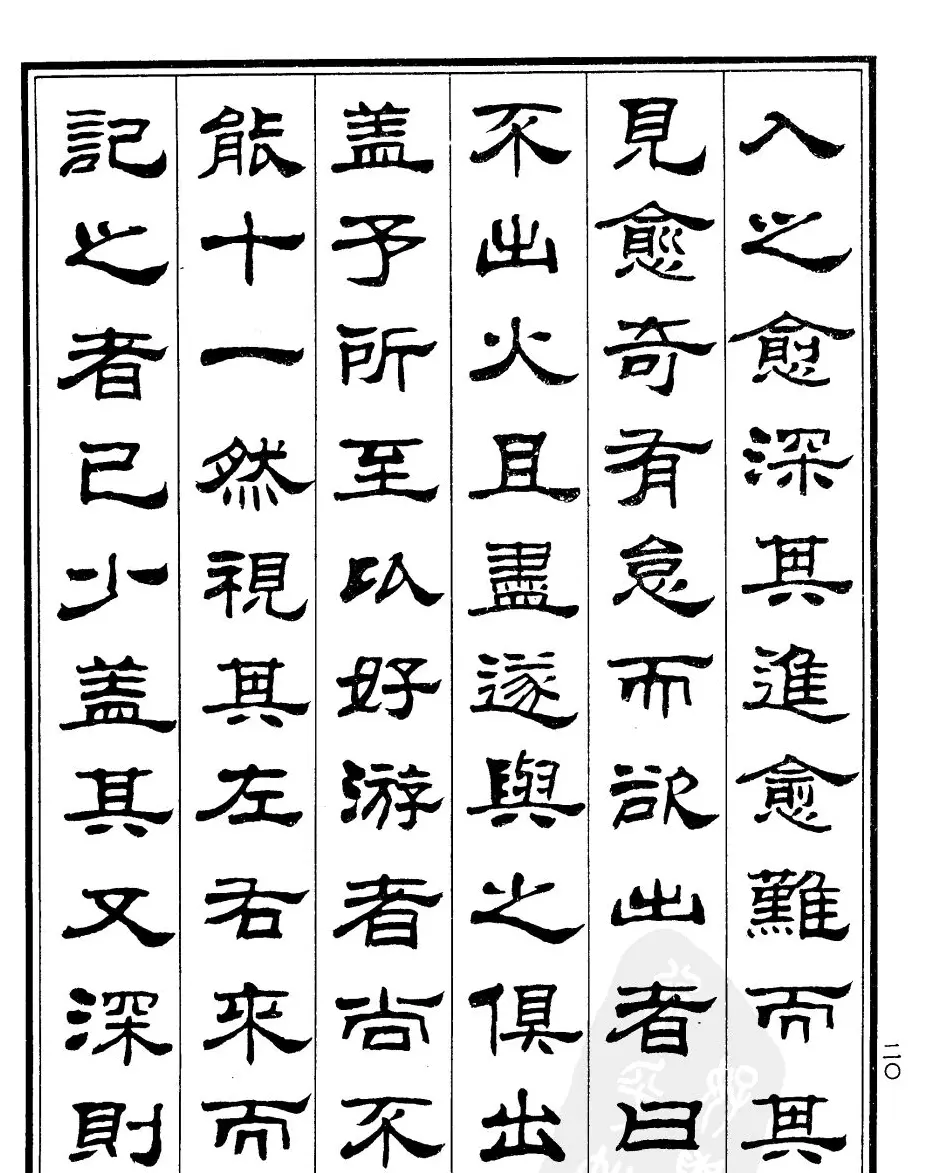 入之愈深其進愈難而其
見愈奇有怠而欲出者曰
不出火且盡遂與之俱出
盖予所至以好游者尚不
能十一然視其左右來而
記之者已少盖其又深則
二〇